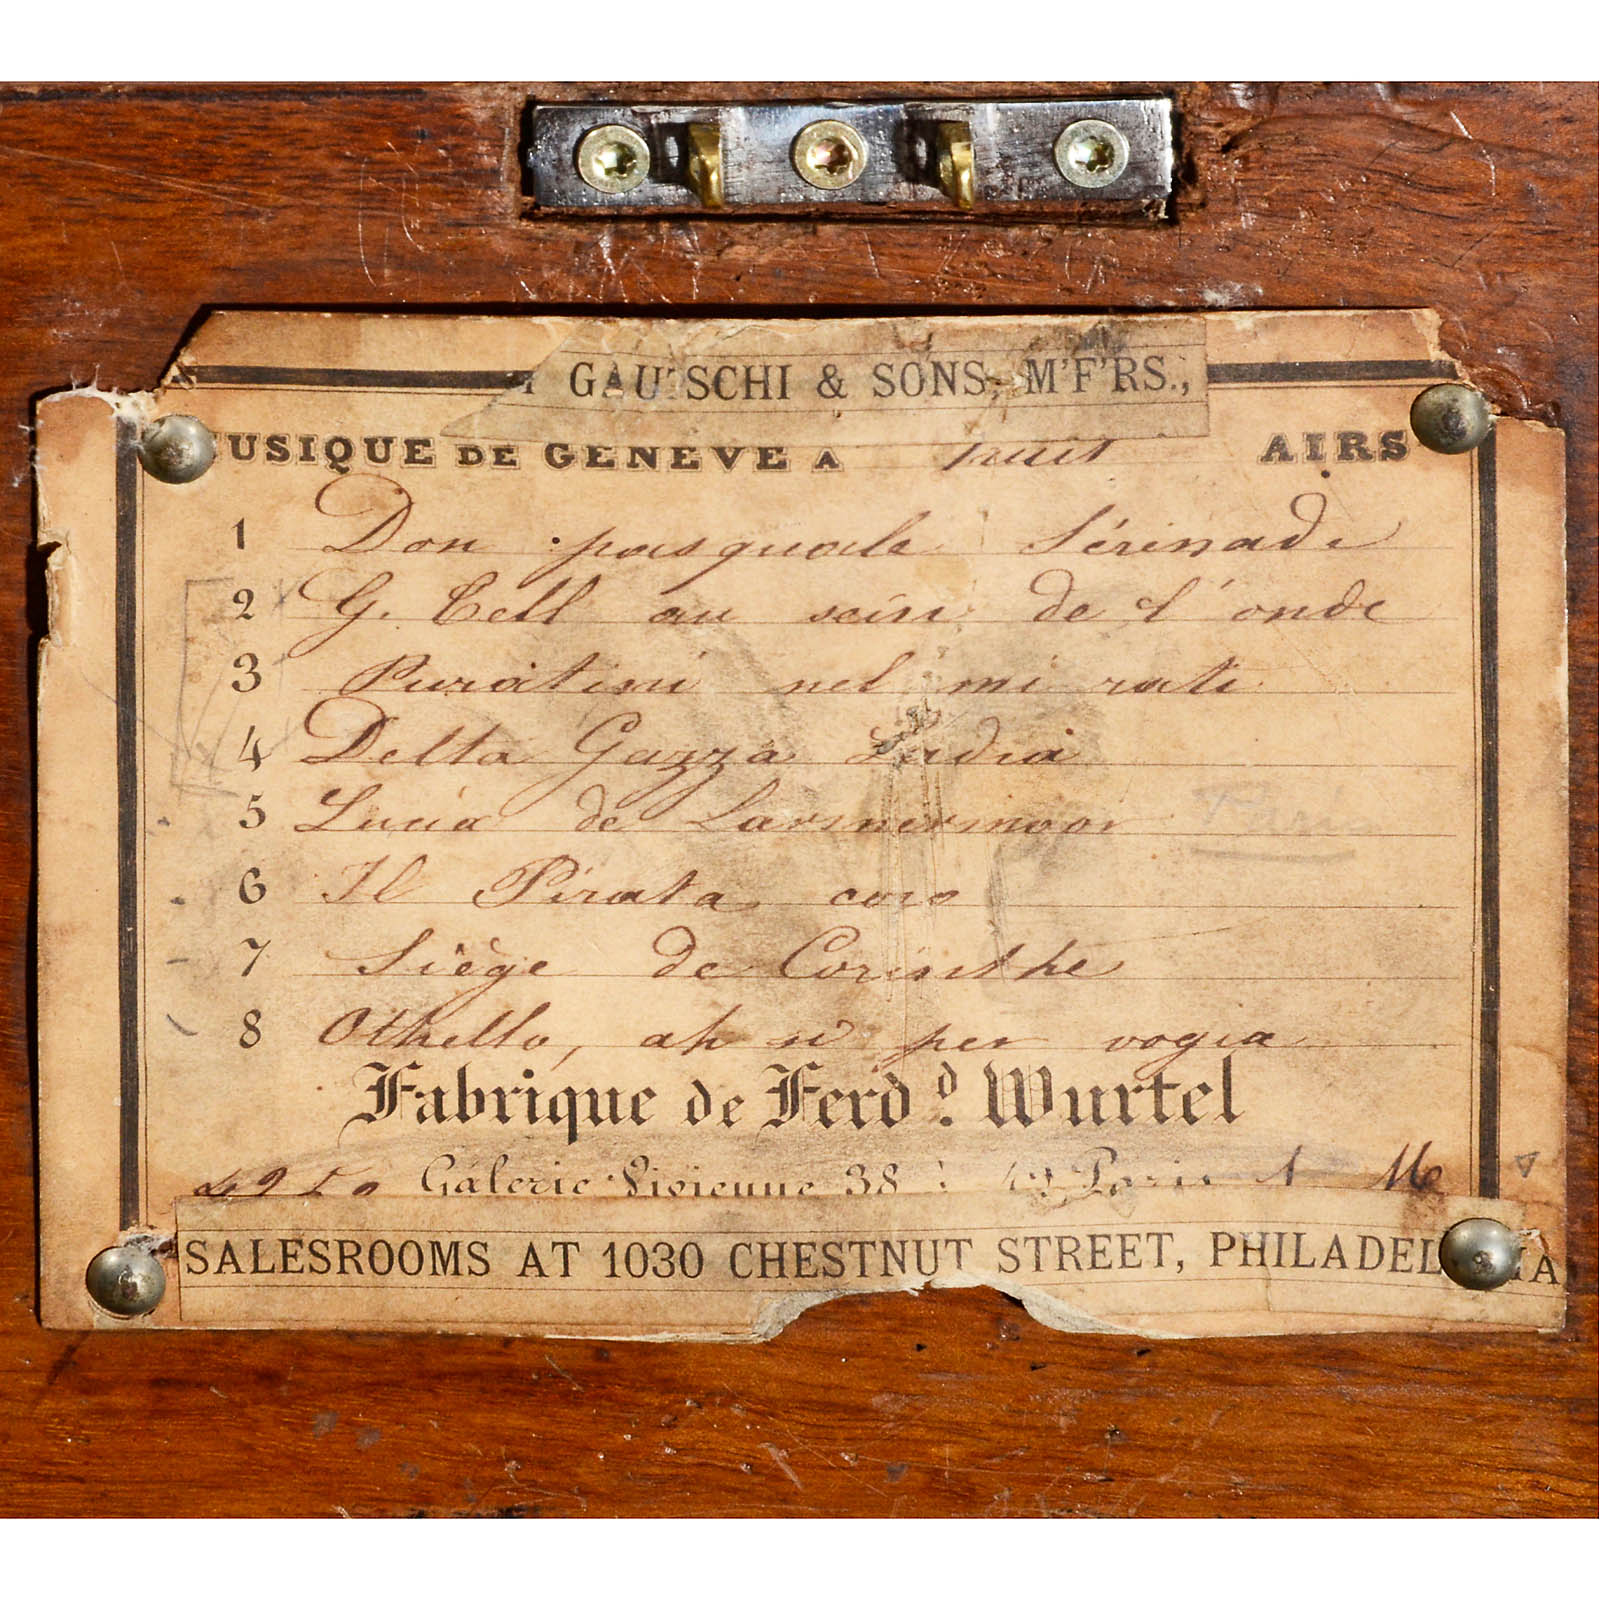 GAUTSCHI & SONS, M'F'RS.,
MUSIQUE DE GENEVE A huit AIRS
1 Don pasquale Sérénade
2 G. Tell au sein de l'onde
3 Puratini nel mi rati
4 Della Gazza Ladra
5 Lucia de Larmermoor
6 Il Pirata coro
7 Siège de Corinthe
8 Othello, ah si per vogia
Fabrique de Ferd.d Wurtel
4950 Galerie Vivienne 38 Paris 116
SALESROOMS AT 1030 CHESTNUT STREET, PHILADELPHIA